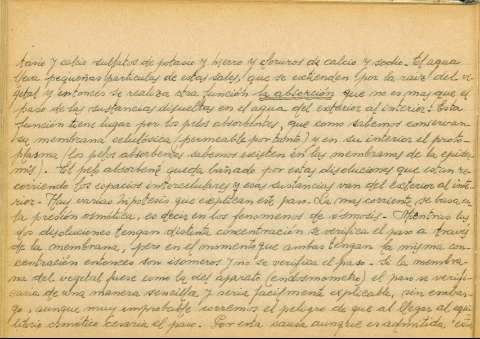 tasio y calcio sulfitos de potasio y hierro y cloruros de calcio y sodio. El agua
lleva pequeñas particulas de estas sales, que se extienden por la raiz del ve
getal y entonces se realiza otra función la absorción que no es mas que el
paso de las sustancias disueltas en el agua del exterior al interior. Esta
función tiene lugar por los pelos absorbentes, que como sabemos conservan
su membrana celulósica (permeable por tanto) y en su interior el proto-
plasma (los pelos absorbentes sabemos existen en las membranas de la epider
mis). El pelo absorbente queda bañado por estas disoluciones que estan re-
corriendo los espacios intercelulares y esas sustancias van del exterior al inte-
rior. Hay varias hipótesis que explican este paso. La mas corriente, se basa en
la presión osmótica, es decir en los fenomenos de osmosis. Mientras las
dos disoluciones tengan distinta concentración se verifica el paso a través
de la membrana, pero en el momento que ambas tengan la misma con-
centración entonces son isómeros y no se verifica el paso. Si la membra-
na del vegetal fuese como la del aparato (endosmometro) el paso se verifi-
caria de una manera sencilla y seria facilmente explicable, sin embar-
go, aunque muy improbable corremos el peligro de que al llegar al equi-
librio osmótico cesaria el paso. Por esta causa aunque es admitida esta